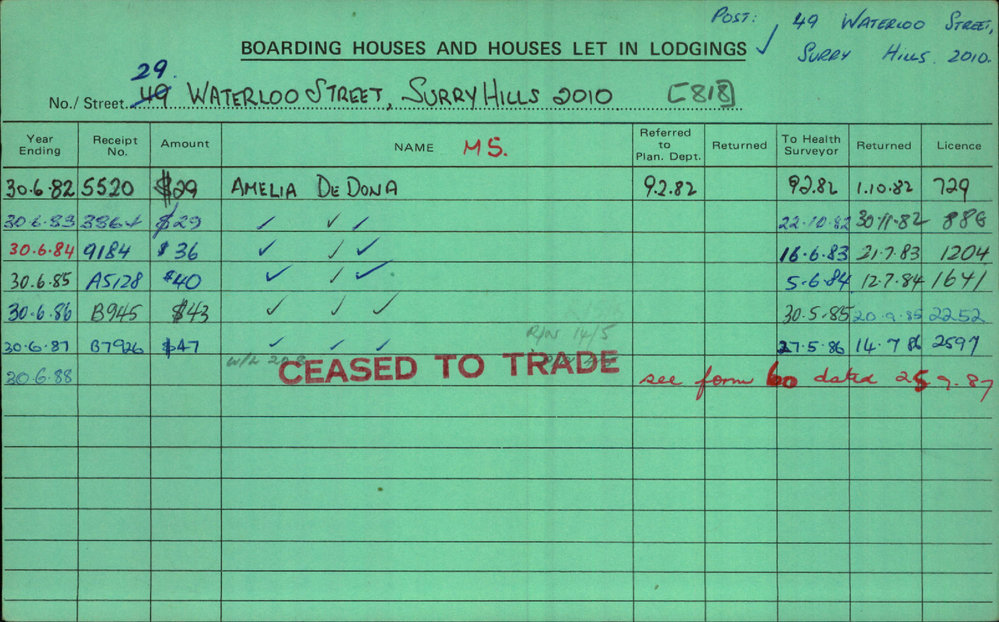 POST: 49 WATERLOO STREET,
SURRY HILLS. 2010.
BOARDING HOUSES AND HOUSES LET IN LODGINGS ✓
29.
No./ Street. 49 WATERLOO STREET, SURRY HILLS 2010 [818]
Year Ending Receipt No. Amount NAME MS. Referred to Plan. Dept. Returned To Health Surveyor Returned Licence
30.6.82 5520 $29 AMELIA DE DONA 9.2.82 9.2.82 1.10.82 729
30.6.83 $29 ✓ ✓ ✓ 22.10.82 30.11.82 886
30.6.84 9184 $36 ✓ / ✓ 16.6.83 21.7.83 1204
30.6.85 A5128 $40 ✓ / ✓ 5.6.84 12.7.84 1641
30.6.86 B945 $43 ✓ ✓ ✓ 30.5.85 20.9.85 2252
R/os 14/5
30.6.87 B7926 $47 ✓ ✓ ✓ 27.5.86 14.7.86 2597
W/L
30.6.88 CEASED TO TRADE see form 60 dated 25.9.87